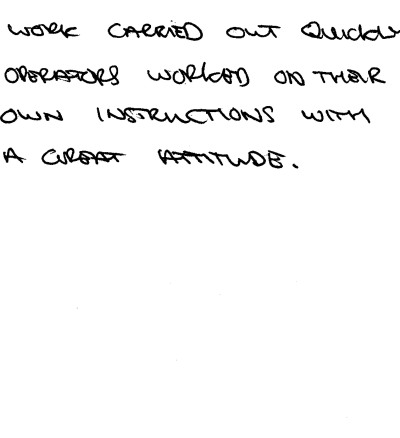 WORK CARRIED OUT QUICKLY
OPERATORS WORKED ON THEIR
OWN INSTRUCTIONS WITH
A GREAT ATTITUDE.